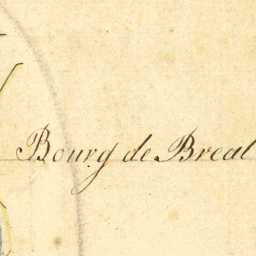 Bourg de Breal